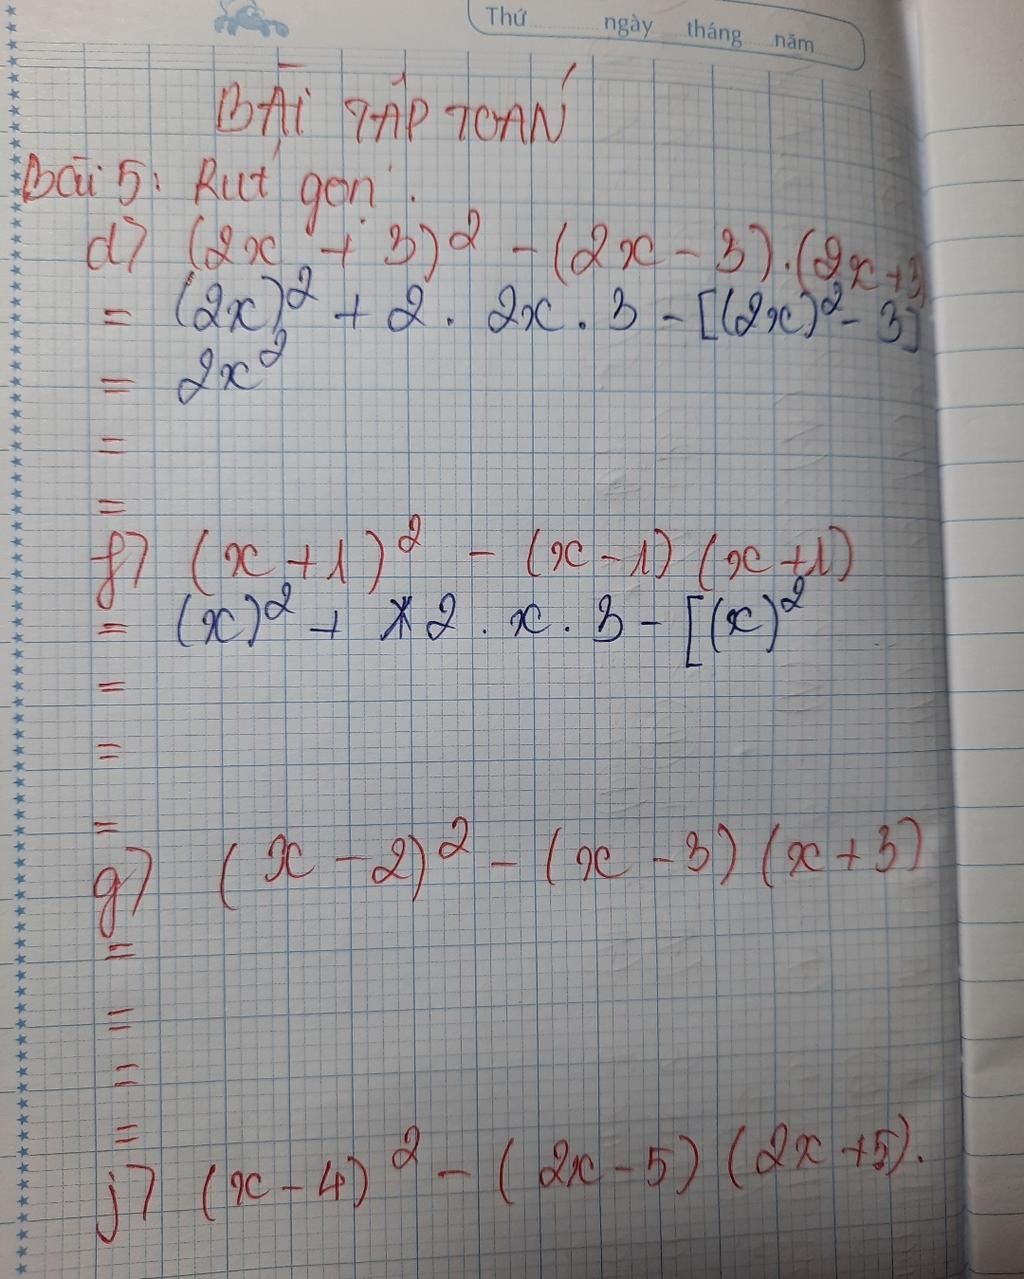 Thứ ngày tháng năm
BÀI TẬP TOÁN
Bài 5: Rút gọn.
d) (2x + 3)² - (2x - 3).(2x+3)
= (2x)² + 2 . 2x . 3 - [(2x)² - 3]
= 2x²
=
=
f) (x + 1)² - (x - 1) (x + 1)
= (x)² + 2 . x . 3 - [(x)²
=
=
=
g) (x - 2)² - (x - 3) (x + 3)
=
=
=
=
j) (x - 4)² - (2x - 5) (2x + 5).